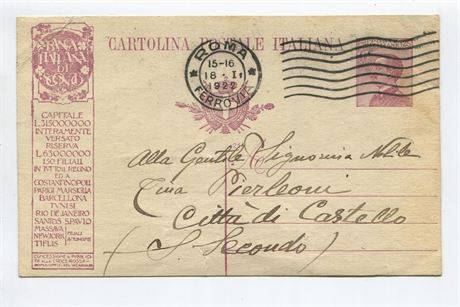 BANCA
ITALIANA
DI
SCONTO
CAPITALE
L.315000000
INTERAMENTE
VERSATO
RISERVA
L.63000000
150 FILIALI
IN TUTTO IL REGNO
ED A
COSTANTINOPOLI
PARIGI MARSIGLIA
BARCELLONA
TUNISI
RIO DE JANEIRO
SANTOS S.PAULO
MASSAUA
NEW YORK
TIFLIS
FILIALI
AUTONOME
CARTOLINA POSTALE ITALIANA
ROMA
15-16
18 · I ·
1922
FERROVIA
Alla Gentile Signorina Nobile
Tina Pierleoni
Città di Castello
(S. Secondo)